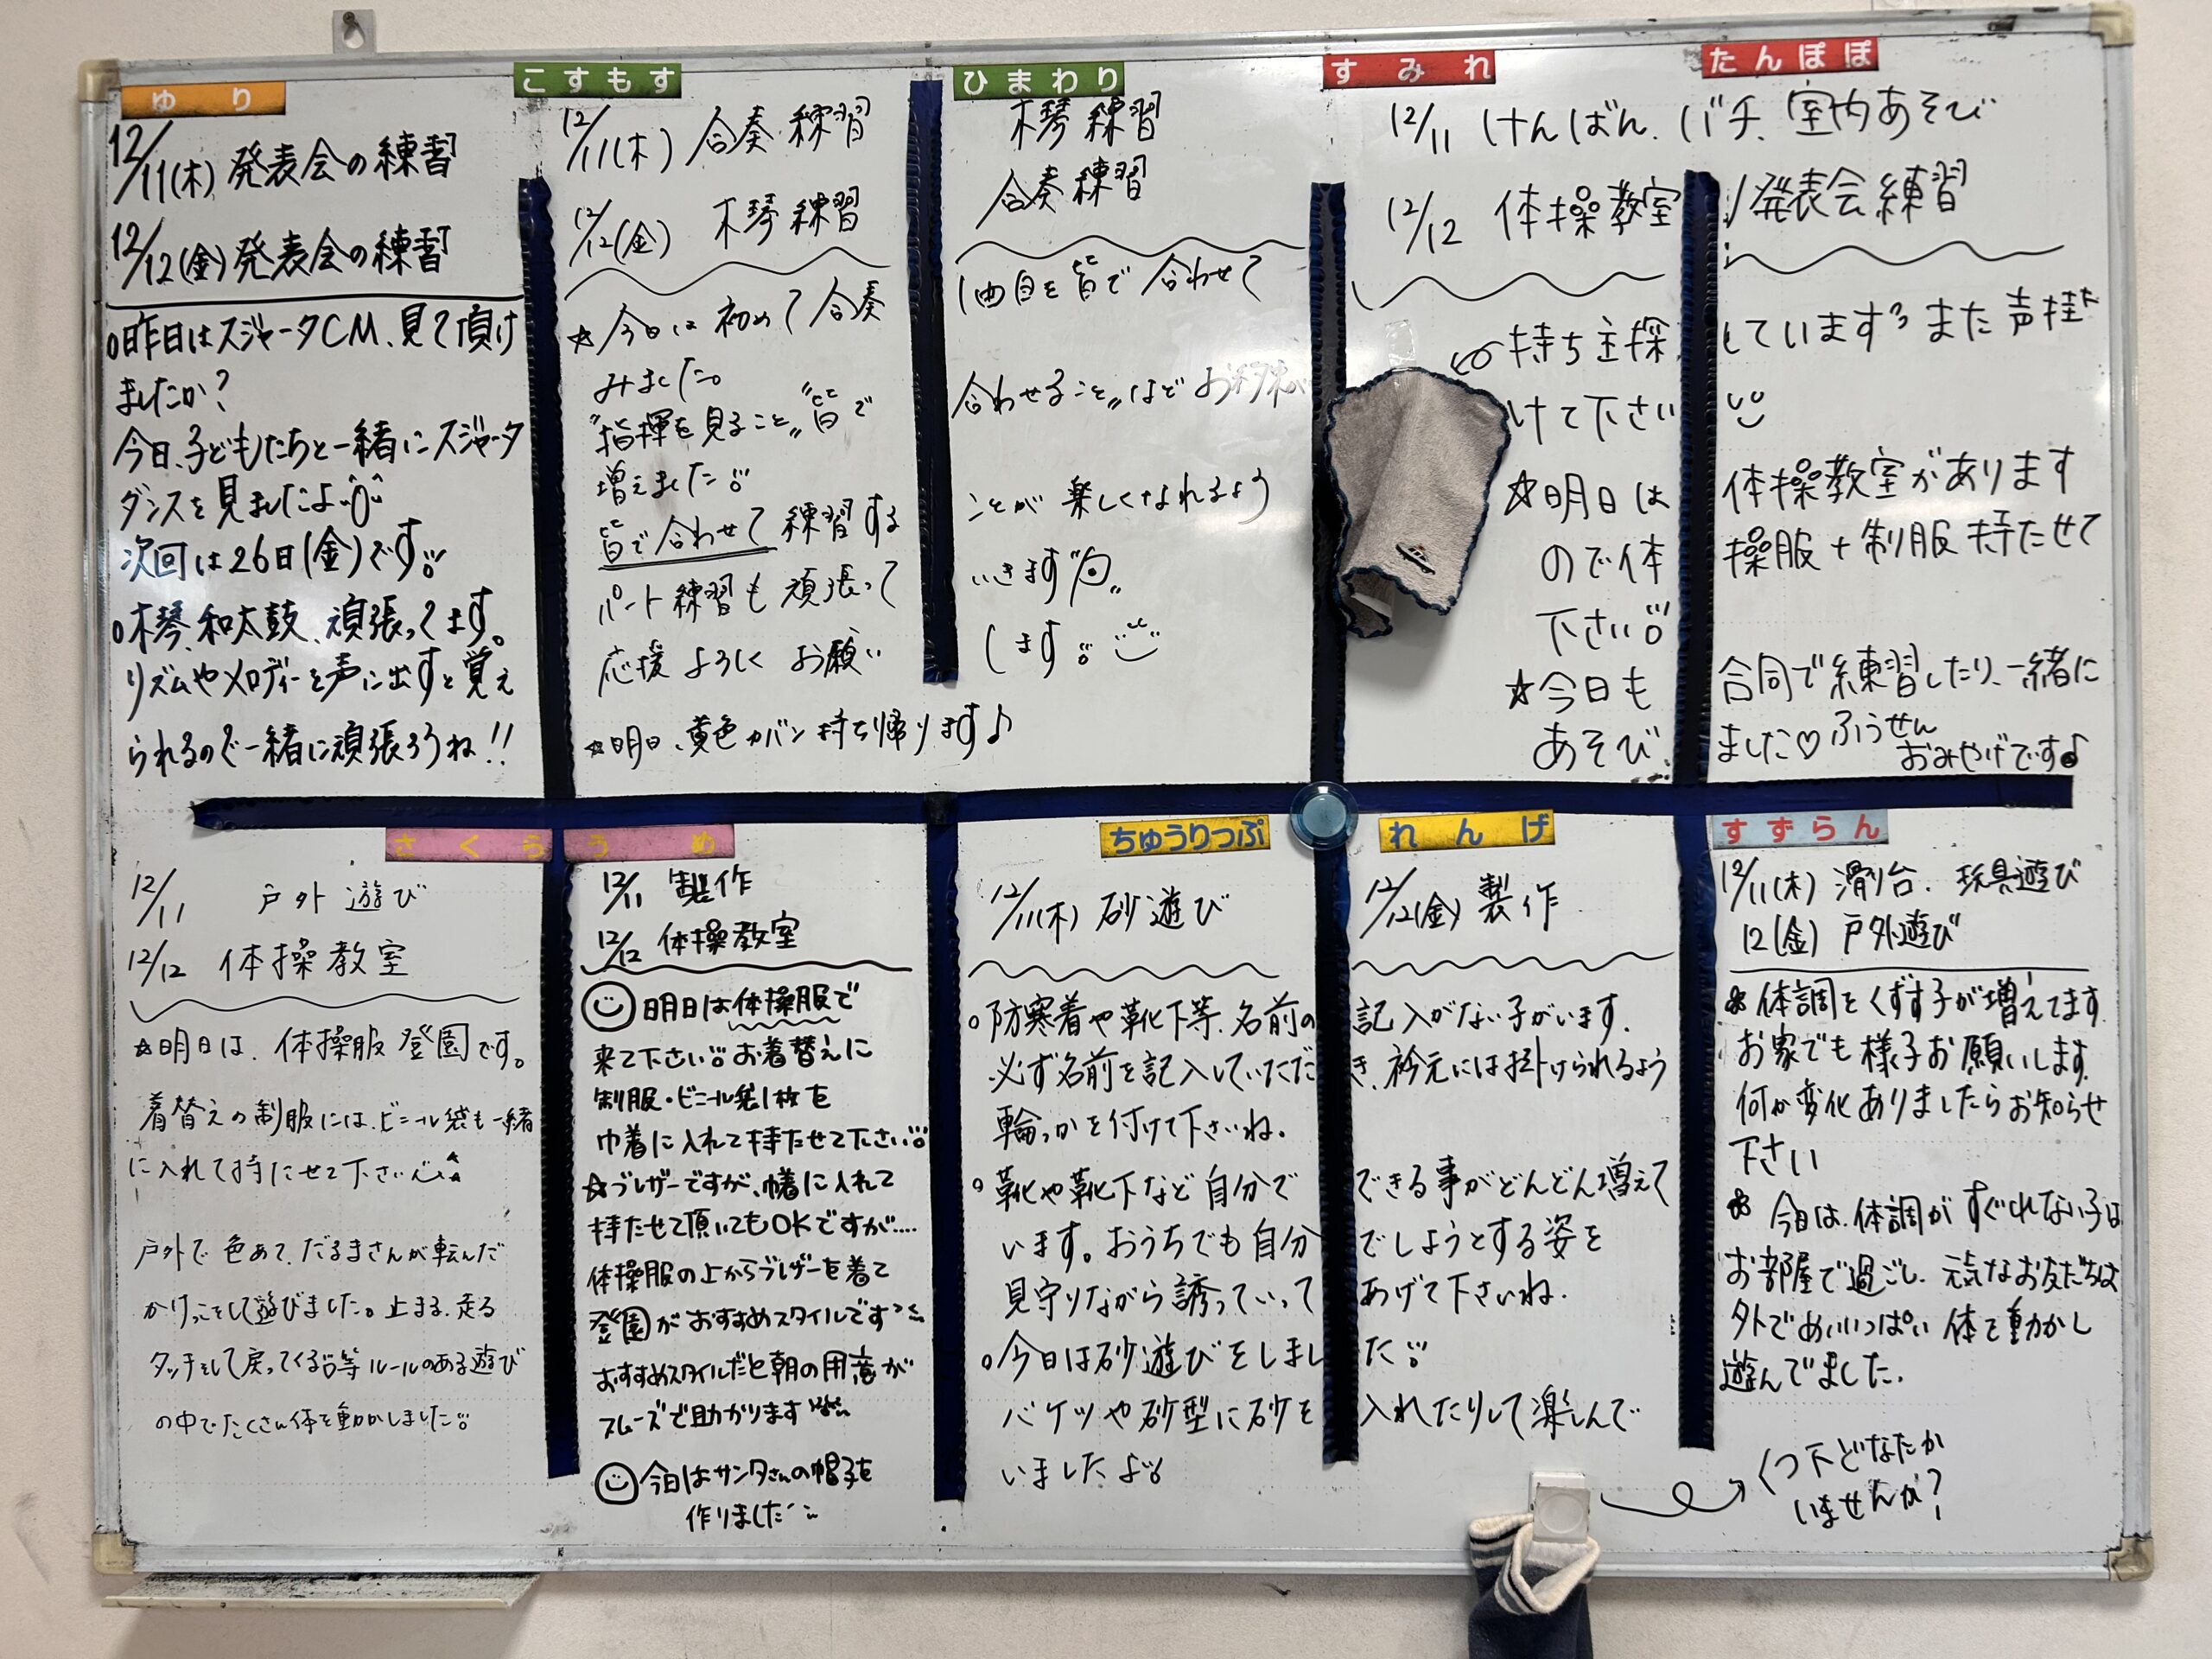 ゆり
12/11(木) 発表会の練習
12/12(金) 発表会の練習
○昨日はスジャータCM、見て頂け
ましたか?
今日、子どもたちと一緒にスジャータ
ダンスを見ましたよ
次回は26日(金)です。
○木琴、和太鼓、頑張ってます。
リズムやメロディーを声に出すと覚え
られるので一緒に頑張ろうね!!
こすもす ひまわり
12/11(木) 合奏練習 木琴練習
12/12(金) 木琴練習 合奏練習
☆今日は初めて合奏 1曲目を皆で合わせて
みました。
"指揮を見ること" "皆で 合わせること"など お約束が
増えました。
皆で合わせて練習する ことが楽しくなれるよう
パート練習も頑張って いきます
応援よろしくお願い します。
☆明日、黄色カバン持ち帰ります♪
すみれ たんぽぽ
12/11 けんばん、バチ、室内あそび
12/12 体操教室 / 発表会練習
持ち主探 しています また声掛
けて下さい
☆明日は 体操教室があります
ので体 操服+制服持たせて
下さい
☆今日も 合同で練習したり、一緒に
あそび ました♡ ふうせん
おみやげです♪
さくら
12/11 戸外遊び
12/12 体操教室
☆明日は、体操服登園です。
着替えの制服には、ビニール袋も一緒
に入れて持たせて下さい
戸外で色あて、だるまさんが転んだ
かけっこをして遊びました。止まる、走る
タッチをして戻ってくる等ルールのある遊び
の中でたくさん体を動かしました。
うめ
12/11 製作
12/12 体操教室
明日は体操服で
来て下さい。お着替えに
制服・ビニール袋1枚を
巾着に入れて持たせて下さい。
☆ブレザーですが、巾着に入れて
持たせて頂いてもOKですが....
体操服の上からブレザーを着て
登園がおすすめスタイルです
おすすめスタイルだと朝の用意が
スムーズで助かります
今日はサンタさんの帽子を
作りました
ちゅうりっぷ れんげ
12/11(木) 砂遊び 12/12(金) 製作
○防寒着や靴下等、名前の記入がない子がいます。
必ず名前を記入していただき、衿元には掛けられるよう
輪っかを付けて下さいね。
○靴や靴下など自分でできる事がどんどん増えて
います。おうちでも自分でしようとする姿を
見守りながら誘っていってあげて下さいね。
○今日は砂遊びをしました。
バケツや砂型に砂を入れたりして楽しんで
いましたよ。
すずらん
12/11(木) 滑り台、玩具遊び
12(金) 戸外遊び
体調をくずす子が増えてます
お家でも様子お願いします。
何か変化ありましたらお知らせ
下さい
今日は、体調がすぐれない子は
お部屋で過ごし、元気なお友だちは
外でめいいっぱい体を動かし
遊んでました。
くつ下どなたか
いませんか?